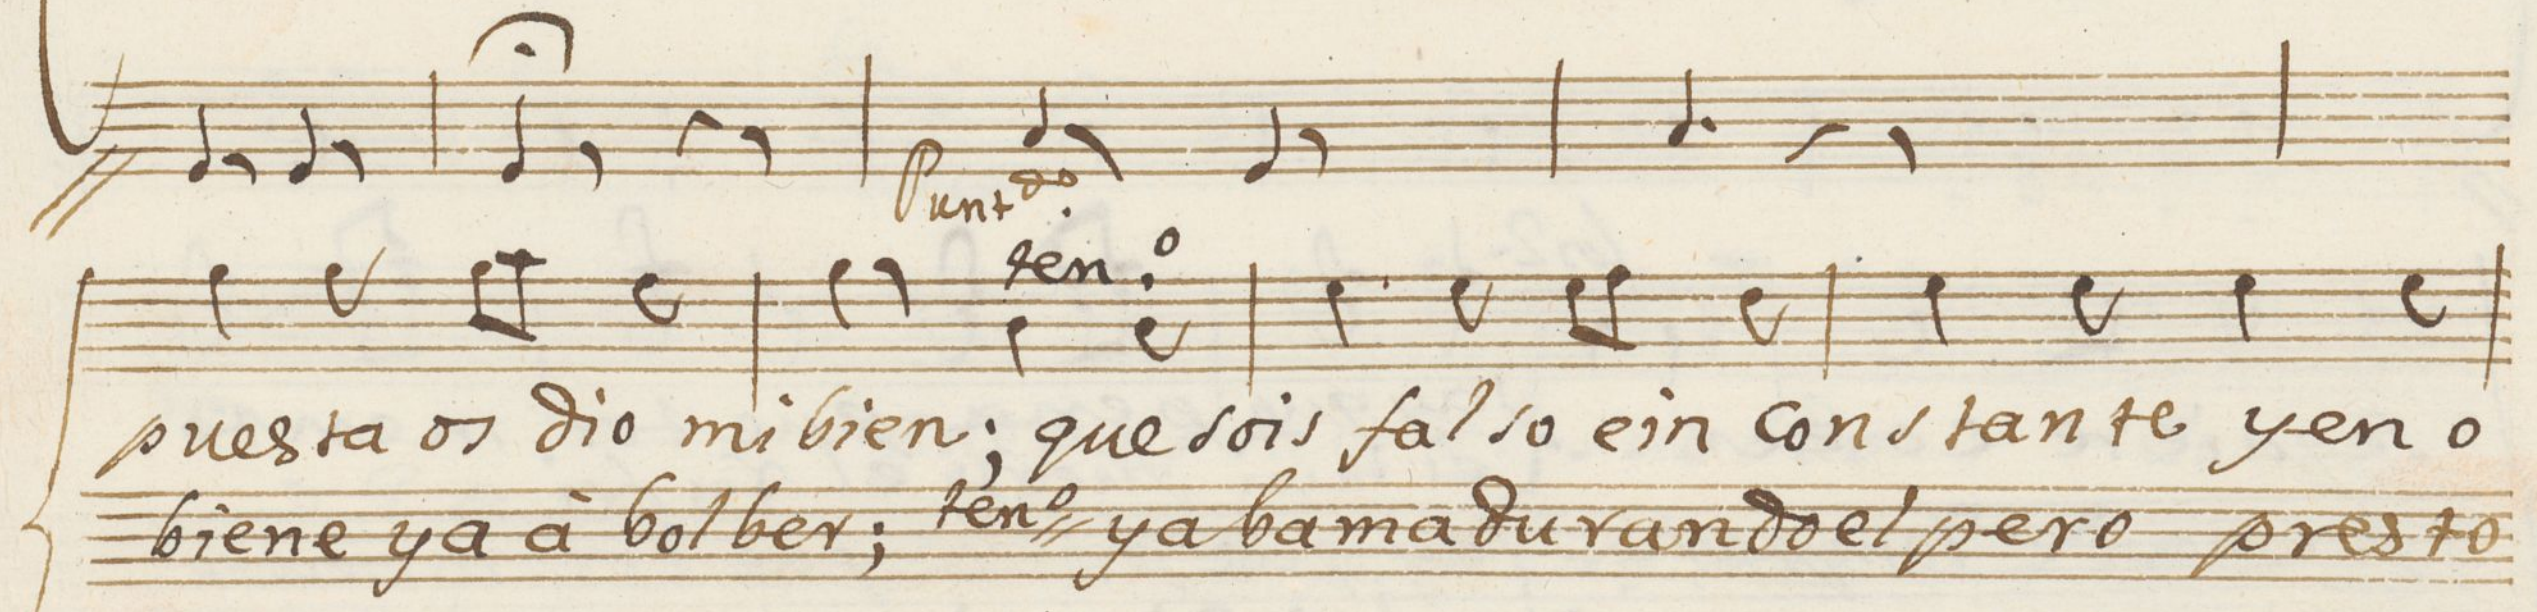 Puntdo.
ten.o
puesta os dio mi bien; que sois falso e in constante y en o
biene ya à bolber; teno= ya ba madurando el pero presto